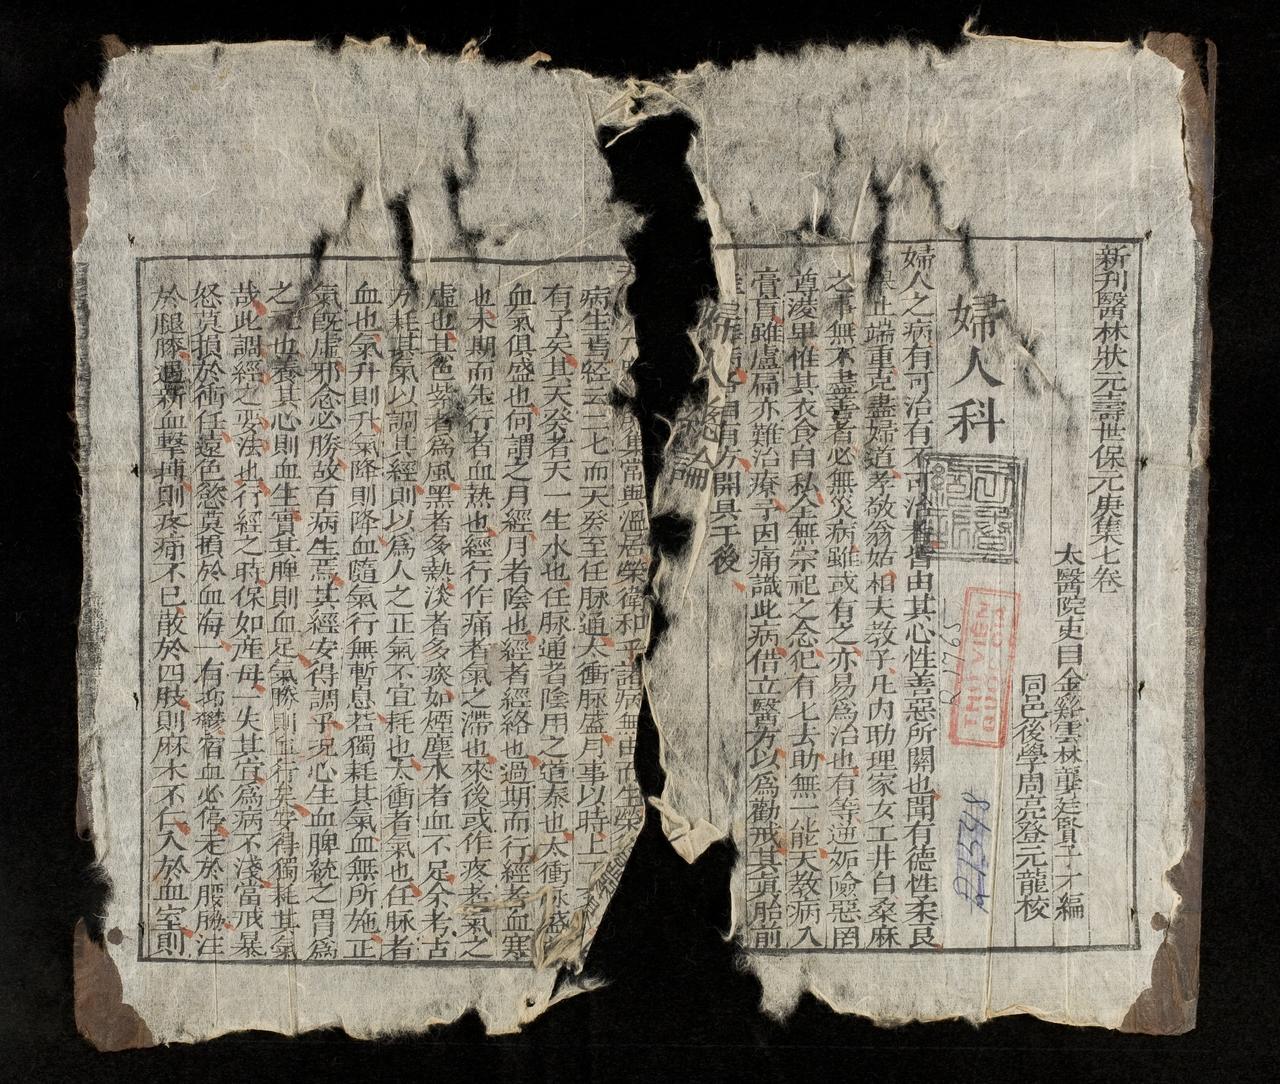 新刊醫林狀元壽世保元庚集七卷
太醫院吏目金谿雲林龔廷賢子才編
同邑後學周亮登元龍校
婦人科
婦人之病有可治有不可治者皆由其心性善惡所關也閫有德性柔良
止端重克盡婦道孝敬翁姑相夫教子凡內助理家女工井臼桑麻
之事無不盡善者必無災病雖或有之亦易為治也有等逆妬險惡罔
尊凌卑惟其衣食自私全無宗祀之念犯有七去助無一能天教病入
膏肓雖盧扁亦難治療予因痛識此病借立醫方以為勸戒其眞胎前
自有方開具于後
婦人總論
病生焉經云二七而天癸至任脉通太衝脉盛月事以時上下
有子矣其天癸者天一生水也任脉通者陰用之道泰也太衝脉盛
血氣俱盛也何謂之月經月者陰也經者經絡也過期而行經者血寒
也未期而先行者血熱也經行作痛者氣之滯也來後或作疼者氣之
虛也其色紫者為風黑者多熱淡者多痰如煙塵水者血不足余考古
方耗其氣以調其經則以為人之正氣不宜耗也太衝者氣也任脉者
血也氣升則升氣降則降血隨氣行無暫息若獨耗其氣血無所施正
氣既虛邪念必勝故百病生焉其經安得調乎况心生血脾統之胃為
之元也養其心則血生實其脾則血足氣勝則血行矣安得獨耗其氣
哉此調經之要法也行經之時保如產母一失其宜為病不淺當戒暴
怒莫損於衝任遠色慾莫損於血海一有抑鬱宿血必停走於腰脇注
於腿膝遇新血擊搏則疼痛不已散於四肢則麻木不仁入於血室則